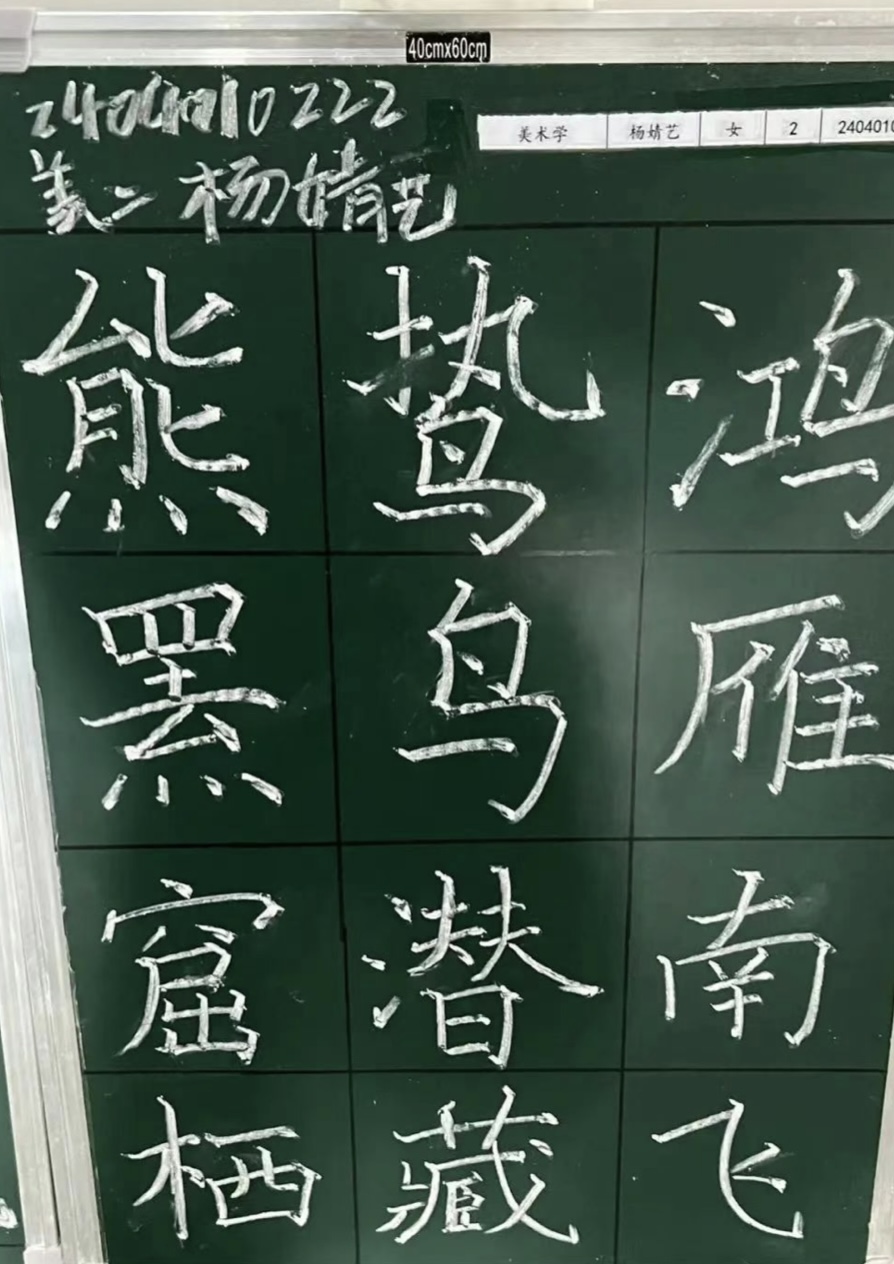 40cmx60cm
2404010222
美二 杨婧艺
美术学 杨婧艺 女 2 240401
鸿雁南飞
鸷鸟潜藏
熊罴窟栖